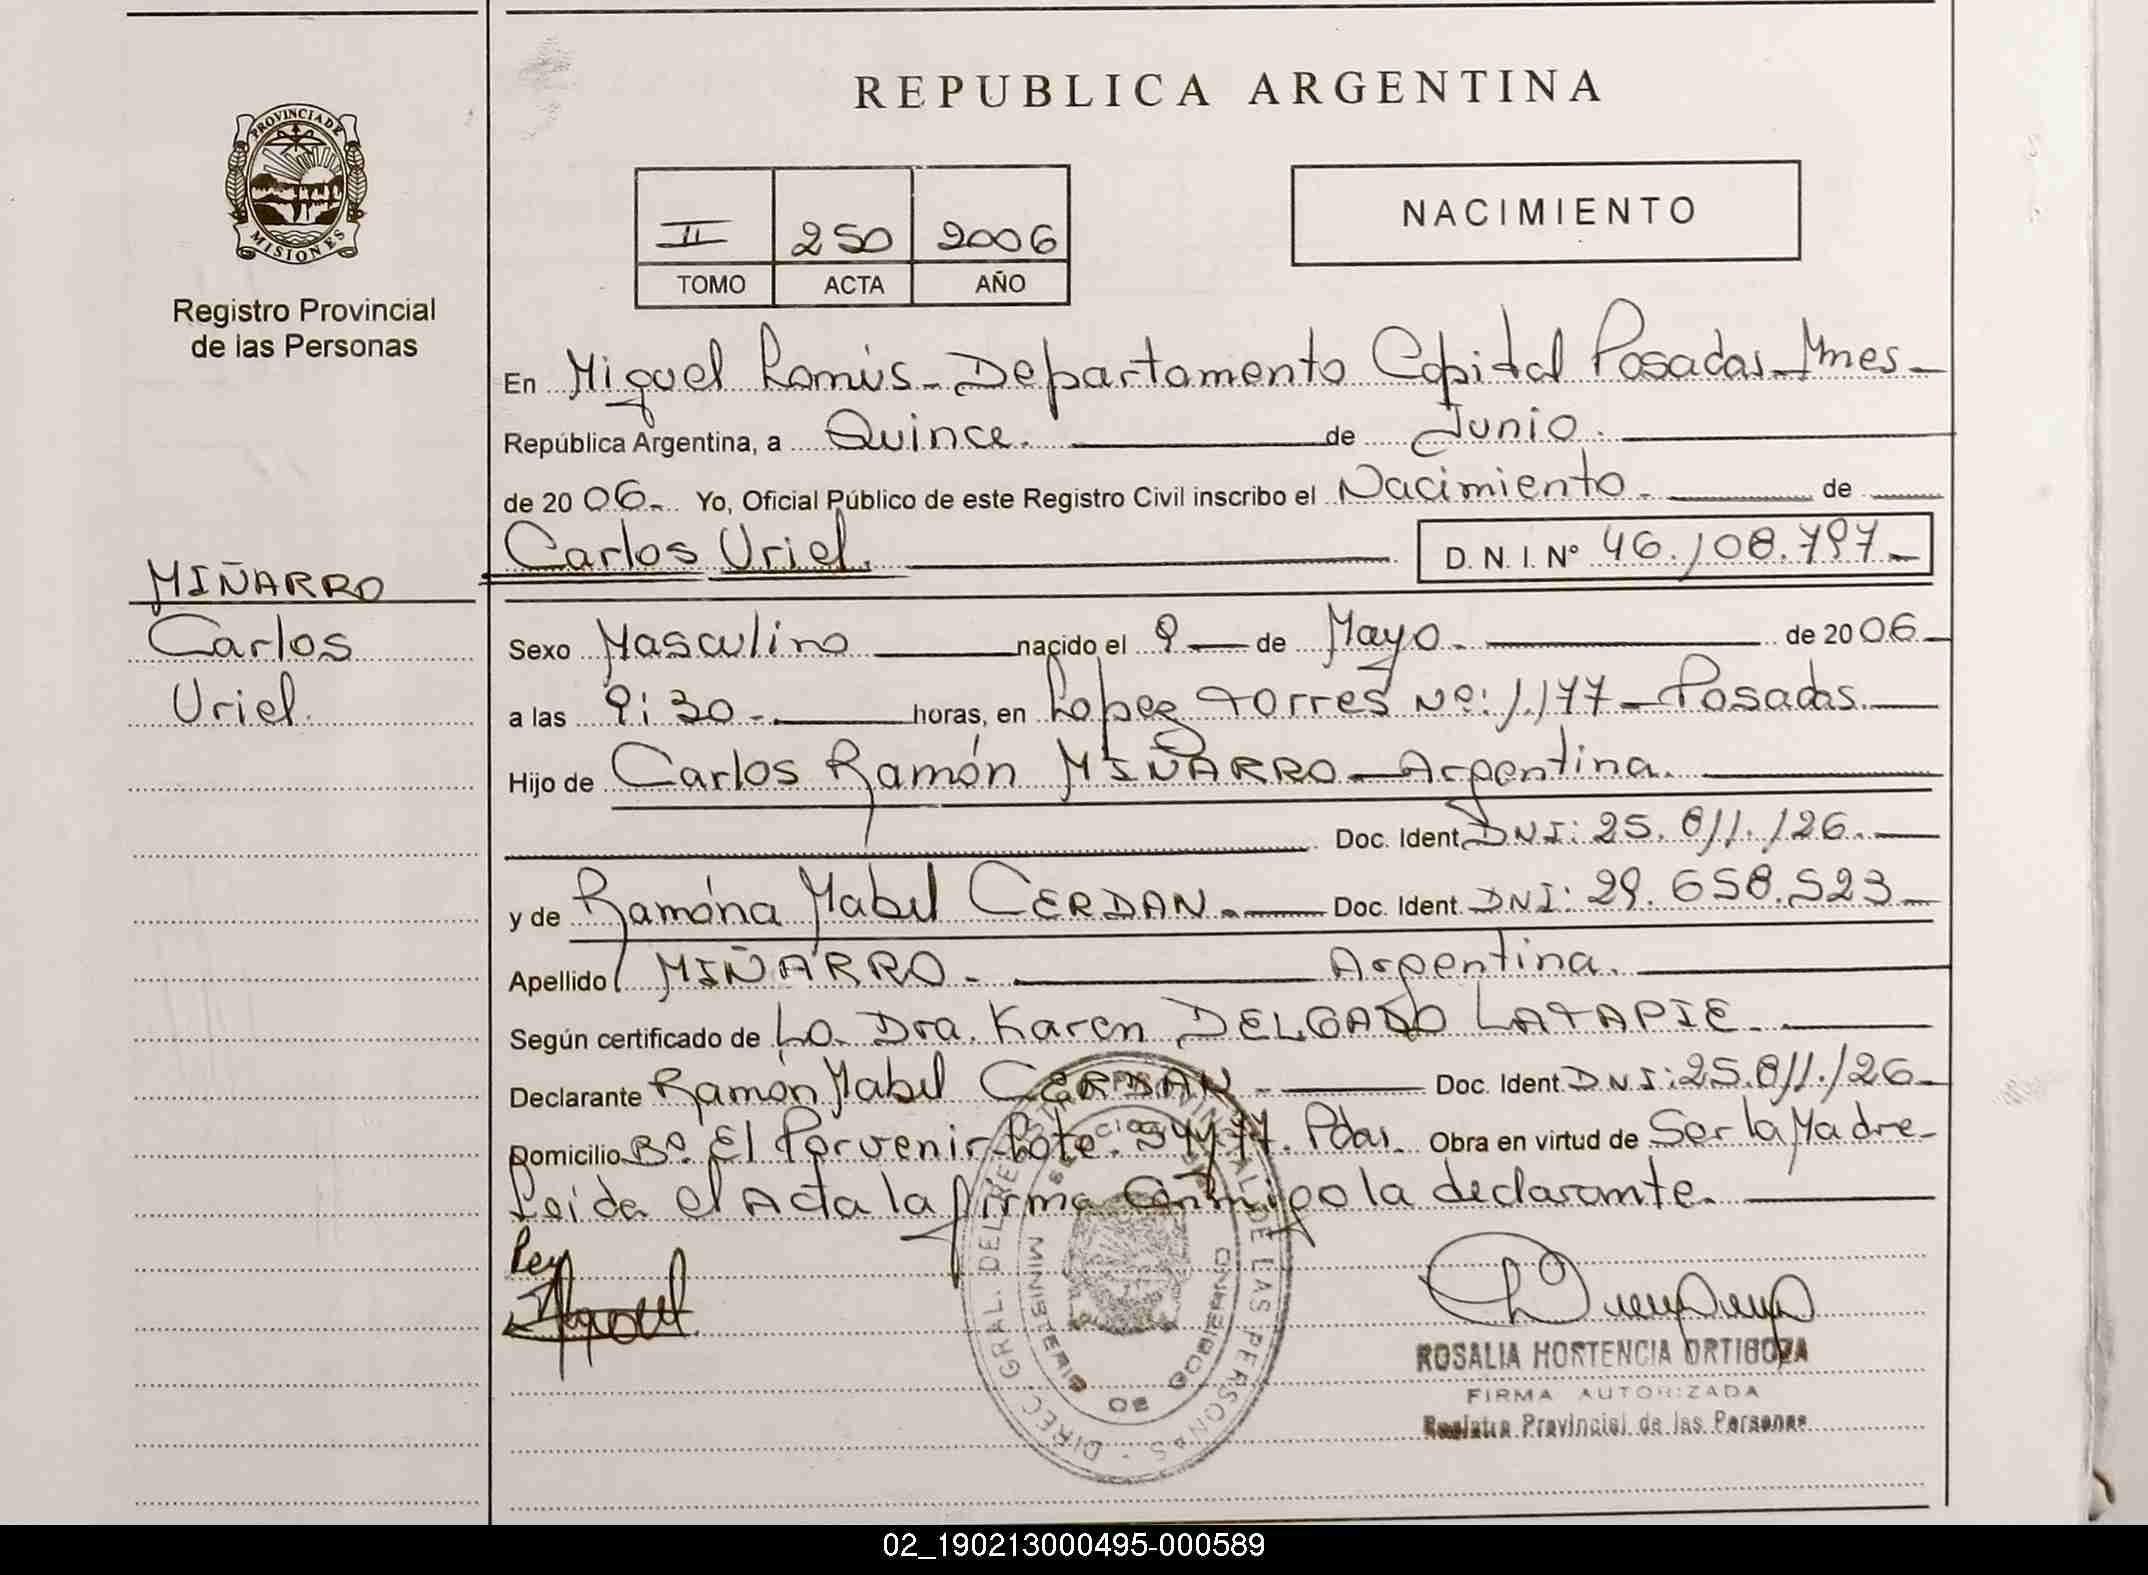 REPUBLICA ARGENTINA
PROVINCIA DE
MISIONES
Registro Provincial
de las Personas
II 250 2006
TOMO ACTA AÑO
NACIMIENTO
En Miguel Lanús - Departamento Capital Posadas - Mnes -
República Argentina, a Quince. de Junio.
de 20 06 - Yo, Oficial Público de este Registro Civil inscribo el Nacimiento - de
Carlos Uriel. D. N. I. N° 46.108.797 -
MIÑARRO
Carlos
Uriel.
Sexo Masculino nacido el 9 de Mayo - de 20 06 -
a las 9:30 - horas, en Lopez Torres Nº: 1.177 - Posadas.
Hijo de Carlos Ramón MIÑARRO - Argentina.
Doc. Ident. DNI: 25.811.126 -
y de Ramóna Mabel CERDAN - Doc. Ident. DNI: 29.658.523 -
Apellido MIÑARRO - Argentina.
Según certificado de La Dra. Karen DELGADO LATAPIE -
Declarante Ramón Mabel CERDAN - Doc. Ident. DNI: 25.811.126 -
Domicilio Bº. El Porvenir Lote. Pdas. Obra en virtud de Ser la Madre -
Leida el Acta la firma Conmigo la declarante -
DIREC. GRAL. DEL REG. PROVINCIAL DE LAS PERSONAS
MINISTERIO DE GOBIERNO
ROSALIA HORTENCIA ORTIGOZA
FIRMA AUTORIZADA
Registro Provincial de las Personas
02_190213000495-000589